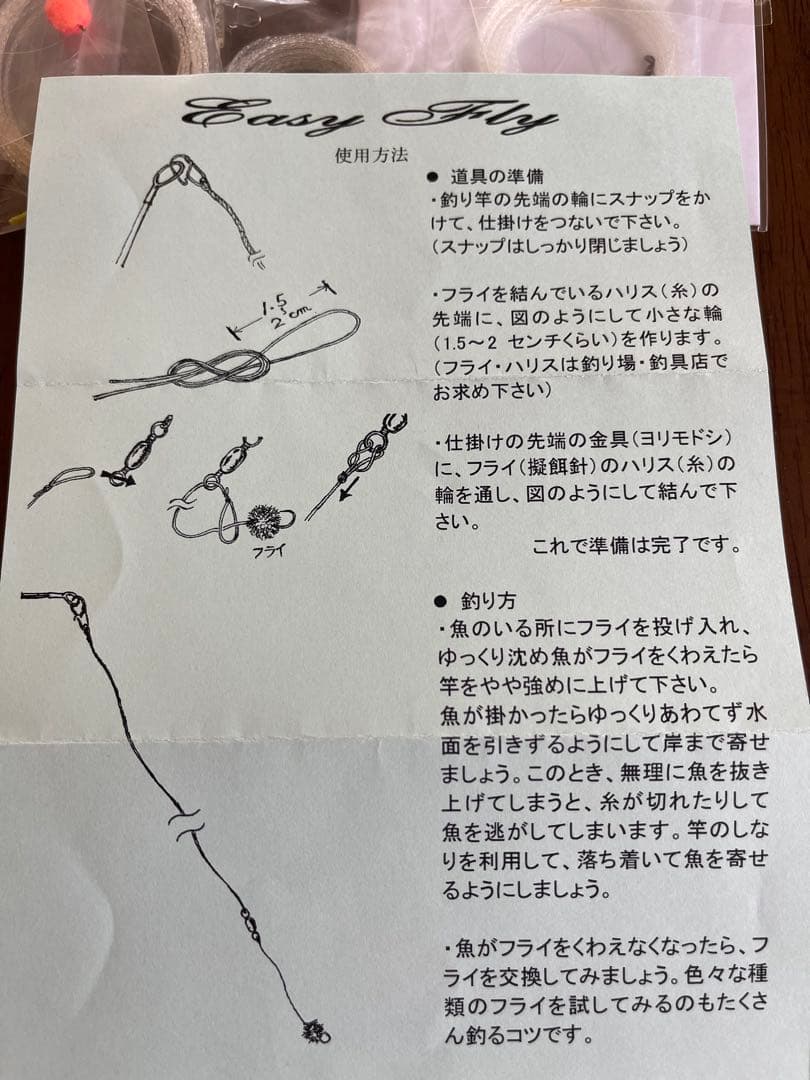 Easy Fly
使用方法
● 道具の準備
・釣り竿の先端の輪にスナップをか
けて、仕掛けをつないで下さい。
(スナップはしっかり閉じましょう)
1.5
〜
2cm
・フライを結んでいるハリス(糸)の
先端に、図のようにして小さな輪
(1.5〜2 センチくらい)を作ります。
(フライ・ハリスは釣り場・釣具店で
お求め下さい)
・仕掛けの先端の金具(ヨリモドシ)
に、フライ(擬餌針)のハリス(糸)の
輪を通し、図のようにして結んで下
さい。
これで準備は完了です。
フライ
● 釣り方
・魚のいる所にフライを投げ入れ、
ゆっくり沈め魚がフライをくわえたら
竿をやや強めに上げて下さい。
魚が掛かったらゆっくりあわてず水
面を引きずるようにして岸まで寄せ
ましょう。このとき、無理に魚を抜き
上げてしまうと、糸が切れたりして
魚を逃がしてしまいます。竿のしな
りを利用して、落ち着いて魚を寄せ
るようにしましょう。
・魚がフライをくわえなくなったら、フ
ライを交換してみましょう。色々な種
類のフライを試してみるのもたくさ
ん釣るコツです。